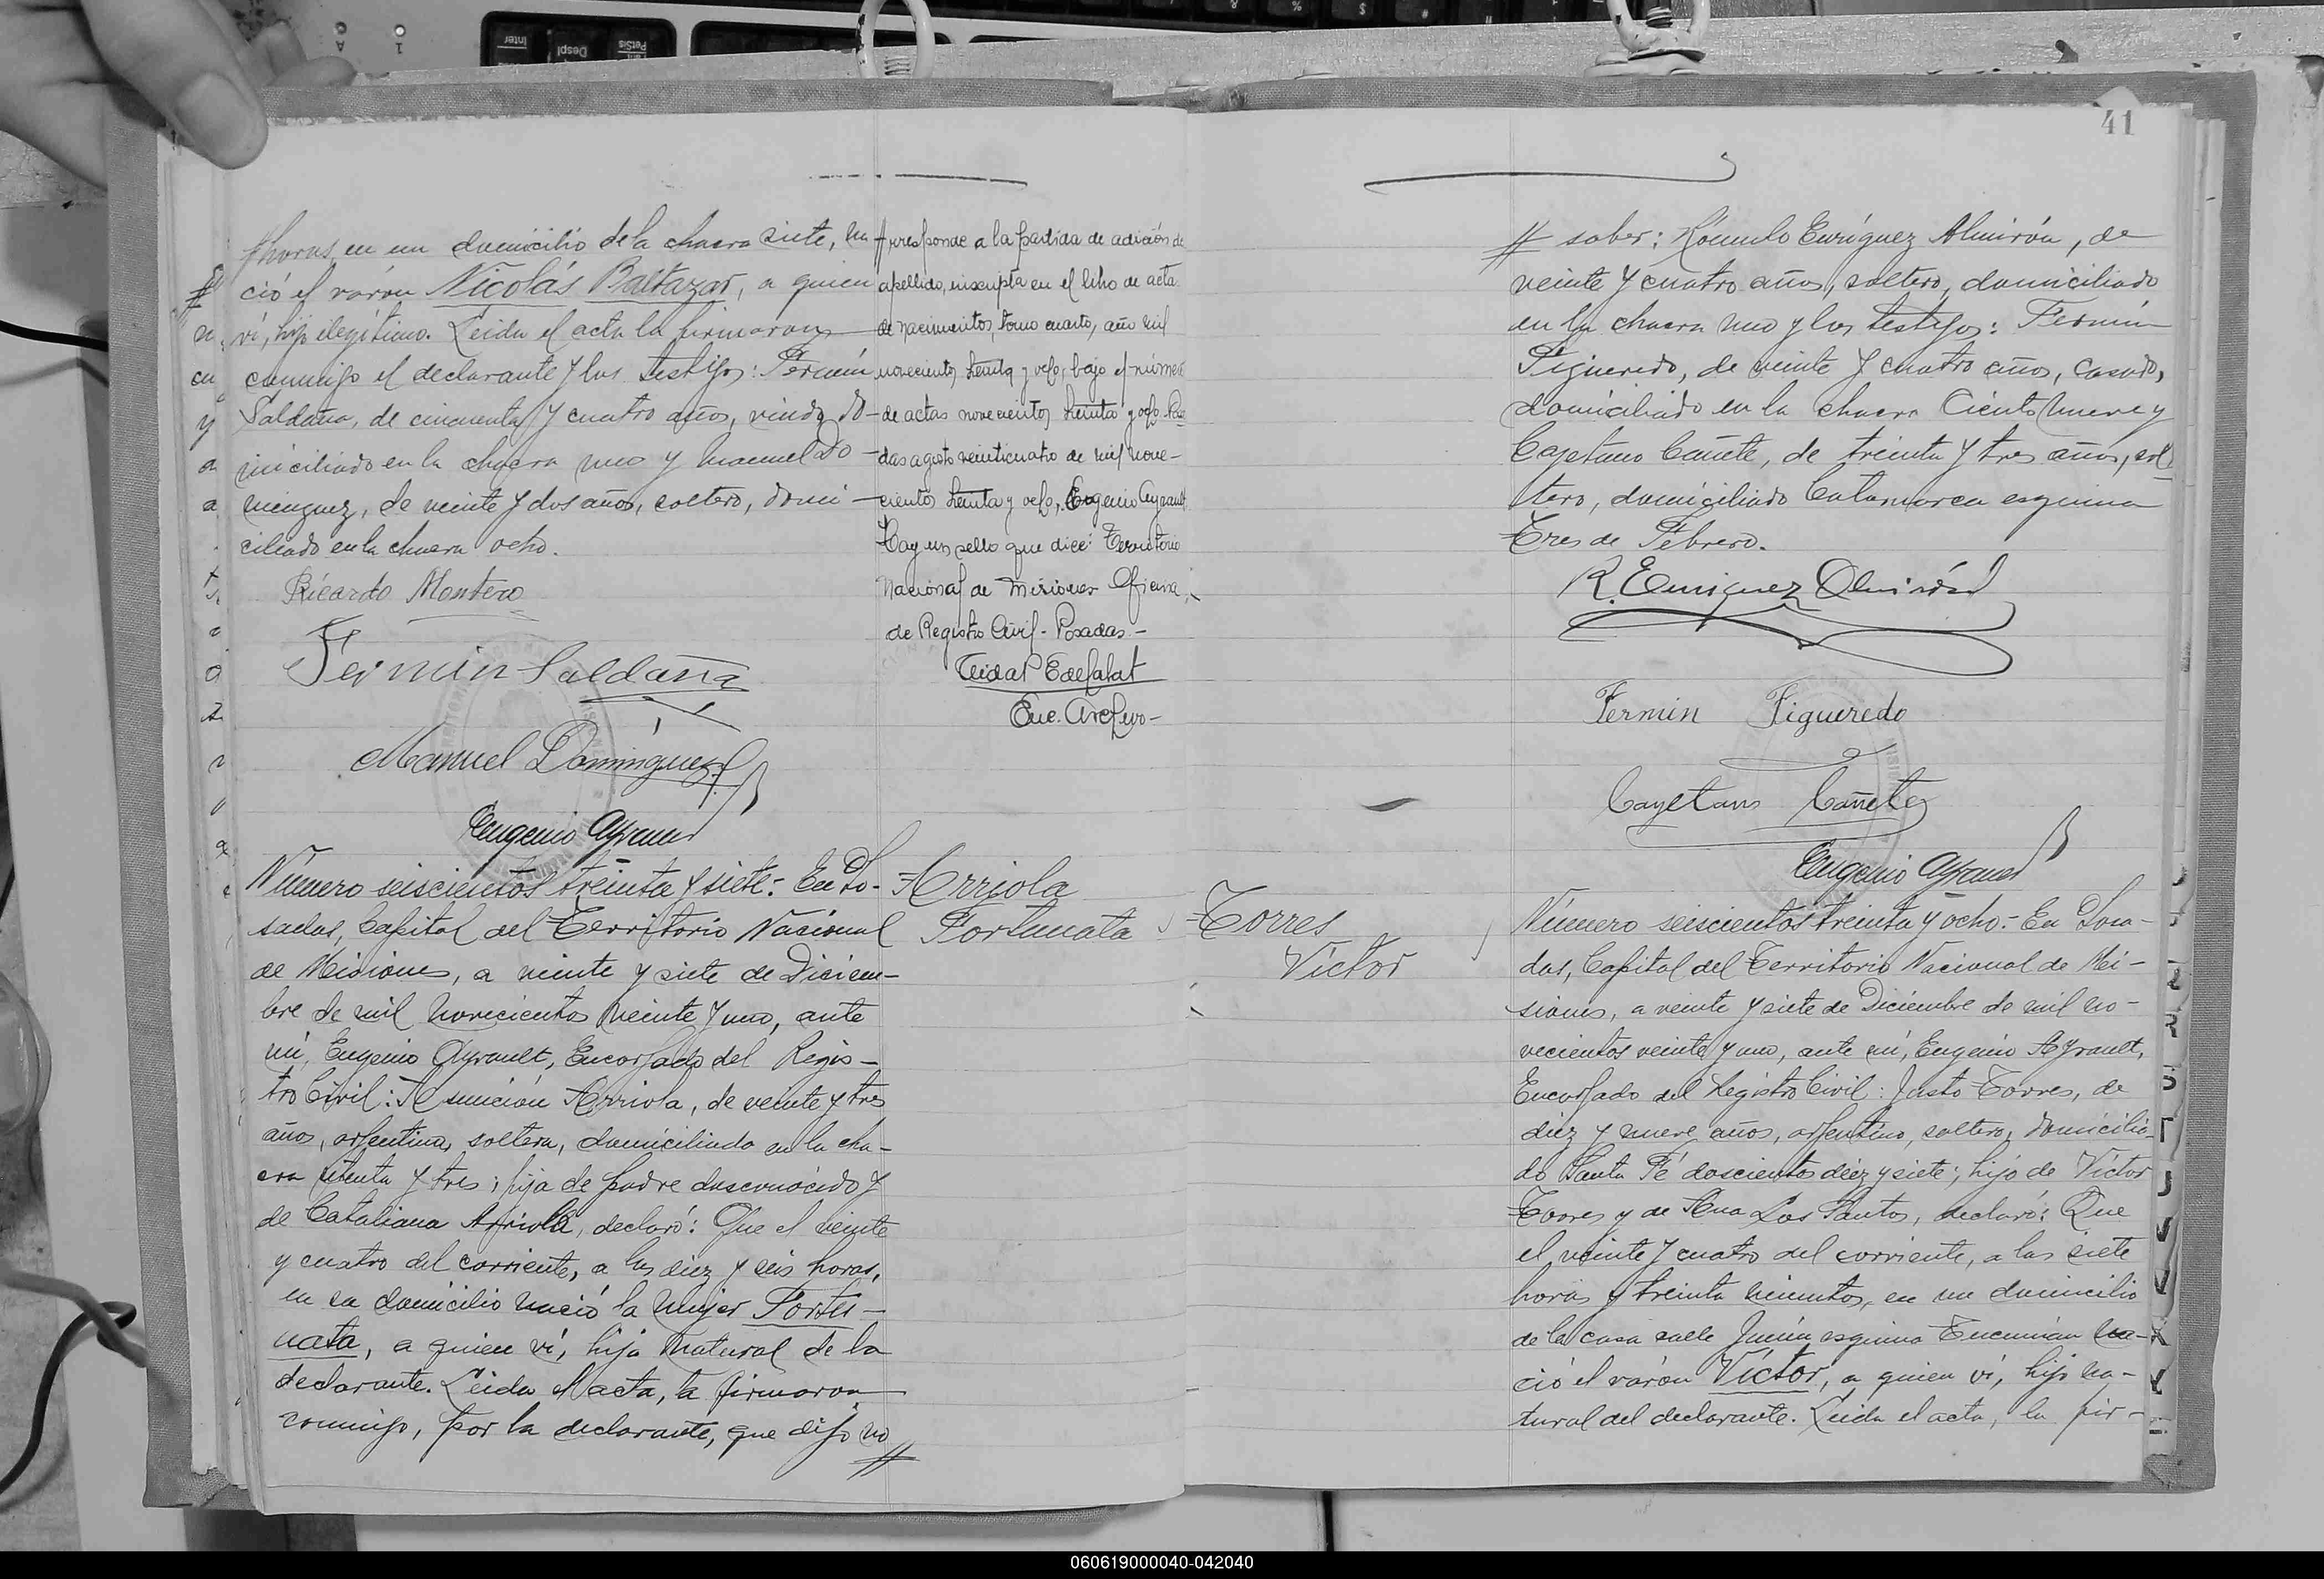 horas, en un domicilio de la chacra siete, na-
ció el varón Nicolás Baltazar, a quien
ví, hijo ilegítimo. Leida el acta la firmaron
conmigo el declarante y los testigos: Fermín
Saldaña, de cincuenta y cuatro años, viudo, do-
miciliado en la chacra uno y Manuel Do-
minguez, de veinte y dos años, soltero, domi-
ciliado en la chacra ocho.
Ricardo Montero
Fermin Saldaña
Manuel Dominguez
Eugenio Ayrault
rresponde a la partida de adición de
apellido, inscripta en el libro de acta
de nacimientos, tomo cuarto, año mil
novecientos treinta y ocho, bajo el número
de actas novecientos treinta y ocho. Posa
das agosto veinticuatro de mil nove-
cientos treinta y ocho, Eugenio Ayrault.
Hay un sello que dice: Territorio
Nacional de Misiones Oficina
de Registro Civil - Posadas -
Enc. Archivo -
Número seiscientos treinta y siete.- En Po-
sadas, Capital del Territorio Nacional
de Misiones, a veinte y siete de Diciem-
bre de mil novecientos veinte y uno, ante
mí, Eugenio Ayrault, Encargado del Regis-
tro Civil: Asunción Arriola, de veinte y tres
años, argentina, soltera, domiciliada en la cha-
cra setenta y tres; hija de padre desconocido y
de Cataliana Arriola, declaró: Que el veinte
y cuatro del corriente, a las diez y seis horas,
en su domicilio nació la mujer Fortu-
nata, a quien ví, hija natural de la
declarante. Leida el acta, la firmaron
conmigo, por la declarante, que dijo no
#
Arriola
Fortunata
41
# saber: Rómulo Enríquez Almirón, de
veinte y cuatro años, soltero, domiciliado
en la chacra uno y los testigos: Fermín
Figueredo, de veinte y cuatro años, casado,
domiciliado en la chacra ciento nueve y
Cayetano Cañete, de treinta y tres años, sol-
tero, domiciliado Catamarca esquina
Tres de Febrero.
R. Enriquez Almirón
Fermin Figueredo
Cayetano Cañete
Eugenio Ayrault
Torres
Víctor
Número seiscientos treinta y ocho.- En Posa-
das, Capital del Territorio Nacional de Mi-
siones, a veinte y siete de Diciembre de mil no-
vecientos veinte y uno, ante mí, Eugenio Ayrault,
Encargado del Registro Civil: Justo Torres, de
diez y nueve años, argentino, soltero, domicilia-
do Santa Fé doscientos diez y siete; hijo de Víctor
Torres y de Ana Los Santos, declaró: Que
el veinte y cuatro del corriente, a las siete
horas y treinta minutos, en un domicilio
de la casa calle Junín esquina Tucumán na-
ció el varón Víctor, a quien ví, hijo na-
tural del declarante. Leida el acta, la fir-
060619000040-042040